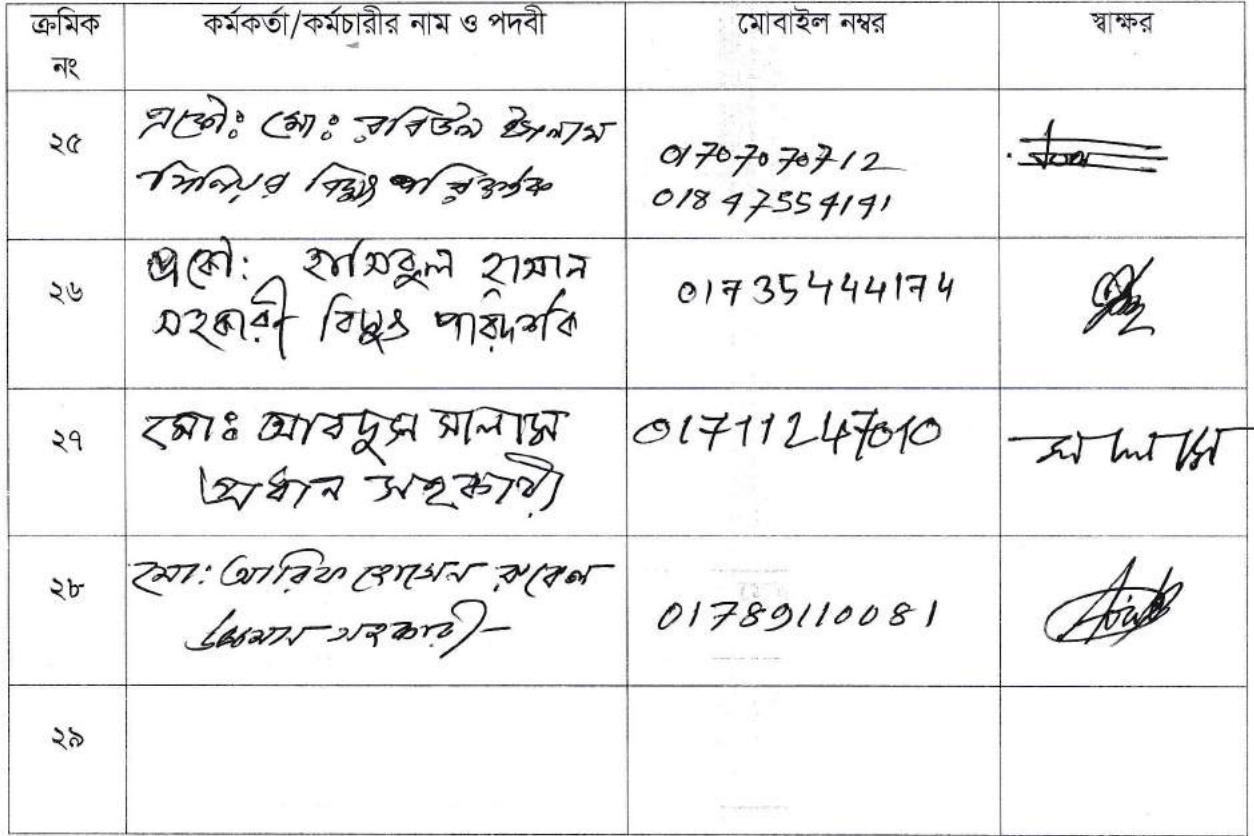 ক্রমিক নং
কর্মকর্তা/কর্মচারীর নাম ও পদবী
মোবাইল নম্বর
স্বাক্ষর
২৫
প্রকৌঃ মোঃ রবিউল ইসলাম
সিনিয়র বিদ্যুৎ পরিদর্শক
01707070712
01847554141
২৬
প্রকৌ: হাসিবুল হাসান
সহকারী বিদ্যুৎ পরিদর্শক
01735444174
২৭
মোঃ আবদুস সালাম
প্রধান সহকারী
01711247010
সালাম
২৮
মো: আরিফ হোসেন রুবেল
সহকারী
01789110081
২৯